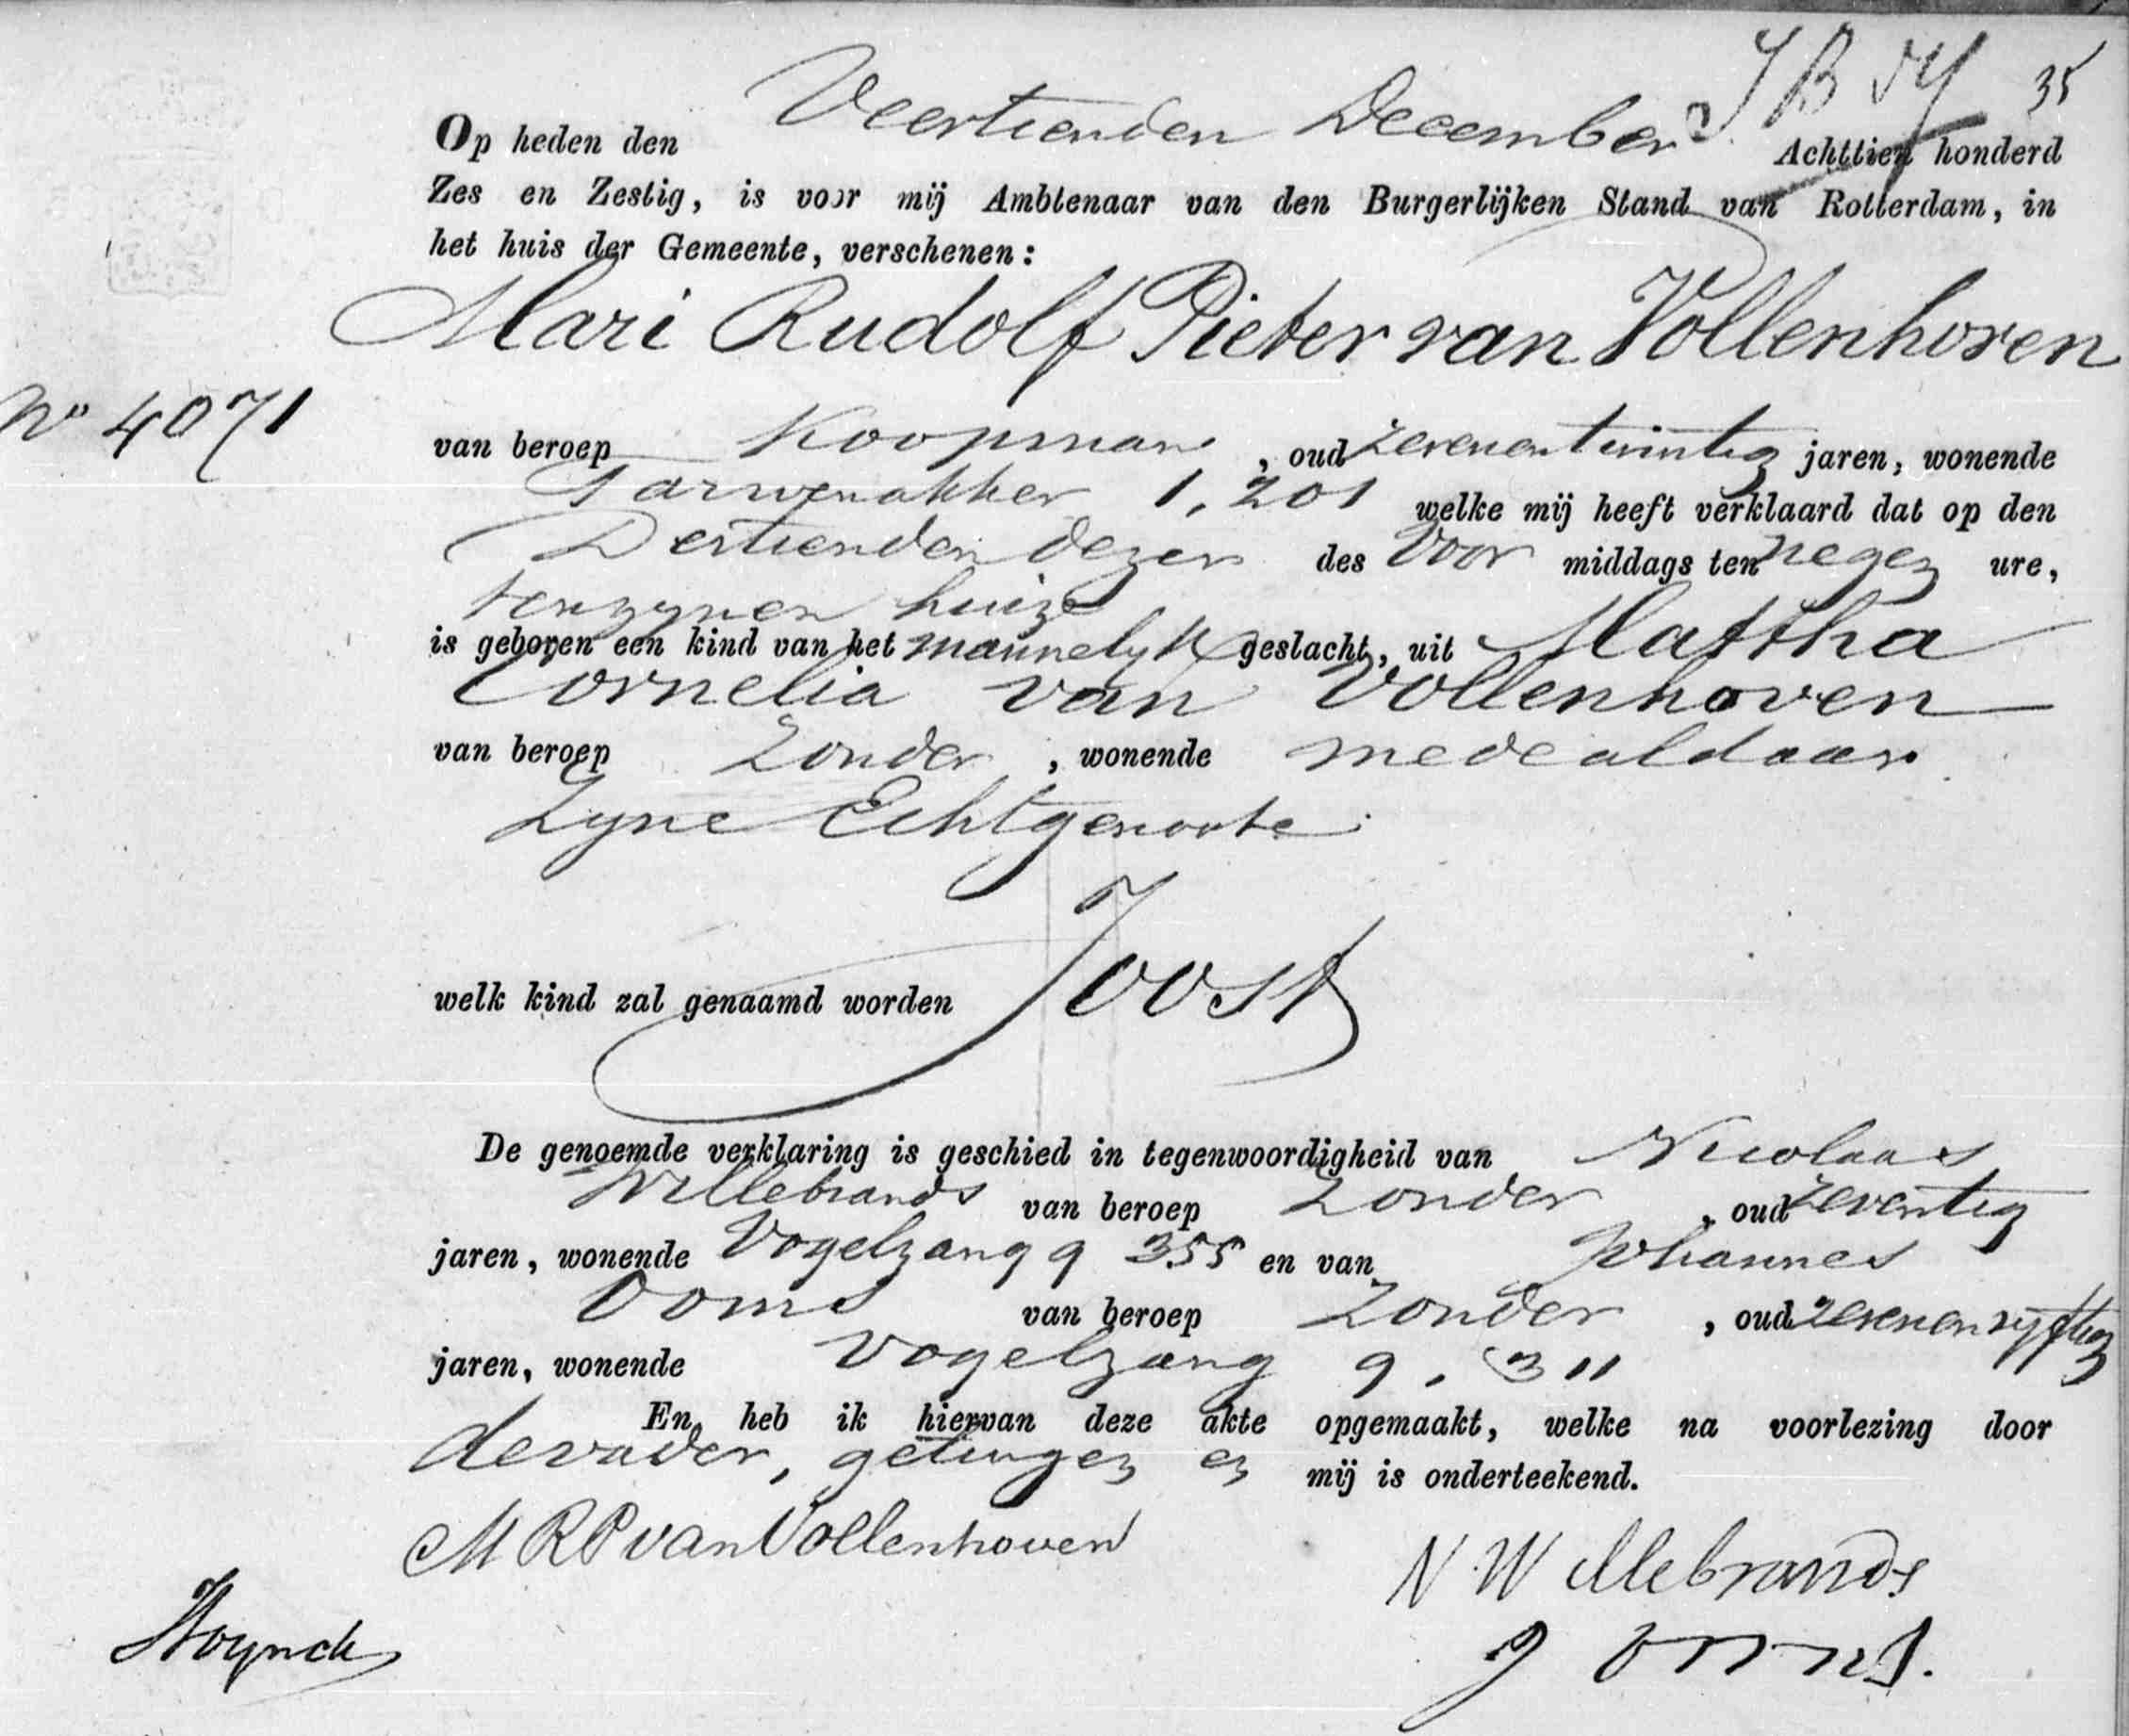 35
Op heden den Veertienden December Achttien honderd
Zes en Zestig, is voor mij Ambtenaar van den Burgerlijken Stand van Rotterdam, in
het huis der Gemeente, verschenen:
Mari Rudolf Pieter van Vollenhoven
No 4071
van beroep Koopman, oud zevenentwintig jaren, wonende
Tarwenakker 1,201 welke mij heeft verklaard dat op den
Dertienden dezer des Voor middags ten negen ure,
ten zynen huize
is geboren een kind van het mannelyk geslacht, uit Martha
Cornelia van Vollenhoven
van beroep Zonder, wonende mede aldaar
Zyne Echtgenoote
welk kind zal genaamd worden Joost
De genoemde verklaring is geschied in tegenwoordigheid van Nicolaas
Willebrands van beroep Zonder, oud zeventig
jaren, wonende Vogelzang 9 355 en van Johannes
Ooms van beroep Zonder, oud zevenenvyftig
jaren, wonende Vogelzang 9. 311
En heb ik hiervan deze akte opgemaakt, welke na voorlezing door
de vader, getuigen en mij is onderteekend.
M R P van Vollenhoven
N Willebrands
J Ooms.